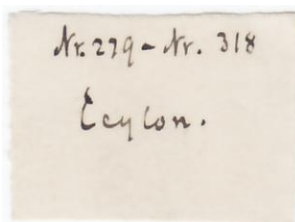 Nr. 279 - Nr. 318
Ceylon.